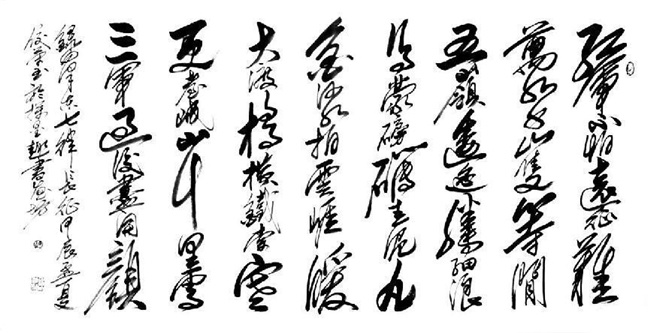 紅軍不怕遠征難
萬水千山隻等閒
五嶺逶迤騰細浪
烏蒙磅礴走泥丸
金沙水拍雲崖暖
大渡橋橫鐵索寒
更喜岷山千里雪
三軍過後盡開顏
錄毛澤東七律長征甲辰孟夏